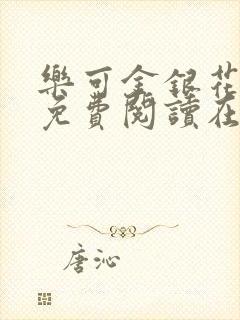 樂可金銀花
免費閱讀在
唐沁